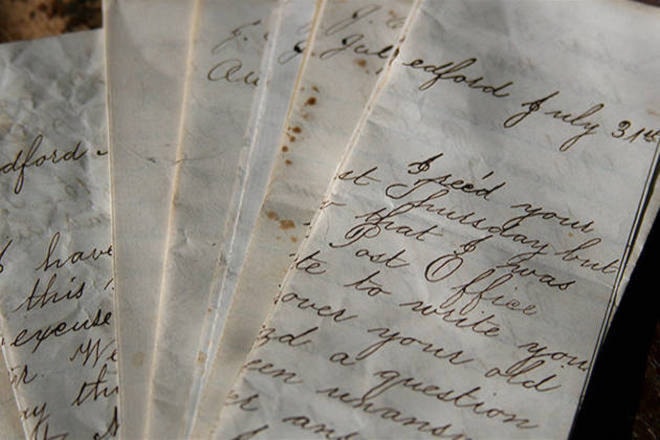 dford
I have
this
excuse
We
J.
Au
J. Jul
edford July 31st
I rec'd your
st Thursday but
that I was
Post Office
te to write you
over your old
d a question
een unansw